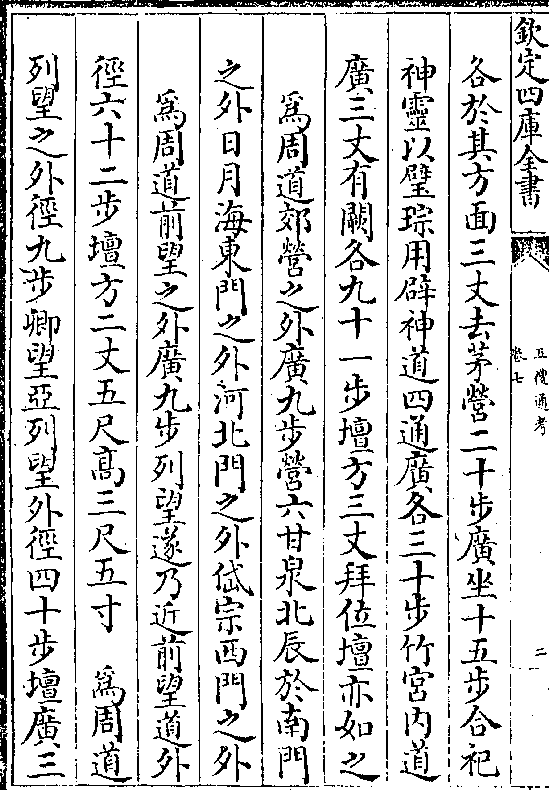 欽定四庫全書
五禮通考
卷七
二
各於其方面三丈去茅營二十步廣坐十五步合祀
神靈以璧琮用辟神道四通廣各三十步竹宮內道
廣三丈有闕各九十一步壇方三丈拜位壇亦如之
爲周道郊營之外廣九步營六甘泉北辰於南門
之外日月海東門之外河北門之外岱宗西門之外
爲周道前望之外廣九步列望遂乃近前望道外
徑六十二步壇方二丈五尺高三尺五寸 爲周道
列望之外徑九步卿望亞列望外徑四十步壇廣三